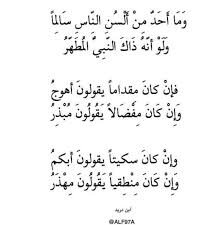 وَمَا أَحَدٌ مِنْ أَلْسُنِ النَّاسِ سَالِماً
وَلَوْ أَنَّهُ ذَاكَ النَّبِيُّ المُطَهَّرُ
فإِنْ كَانَ مقداماً يقولونَ أهوجُ
وَإِنْ كَانَ مِفْضَالاً يَقُولُونَ مُبْذِرُ
وَإِنْ كانَ سكيتاً يقولونَ أبكمُ
وَإِنْ كَانَ مِنْطقِياً يقُولُونَ مِهْذَرُ
ابن دريد
@ALF97A